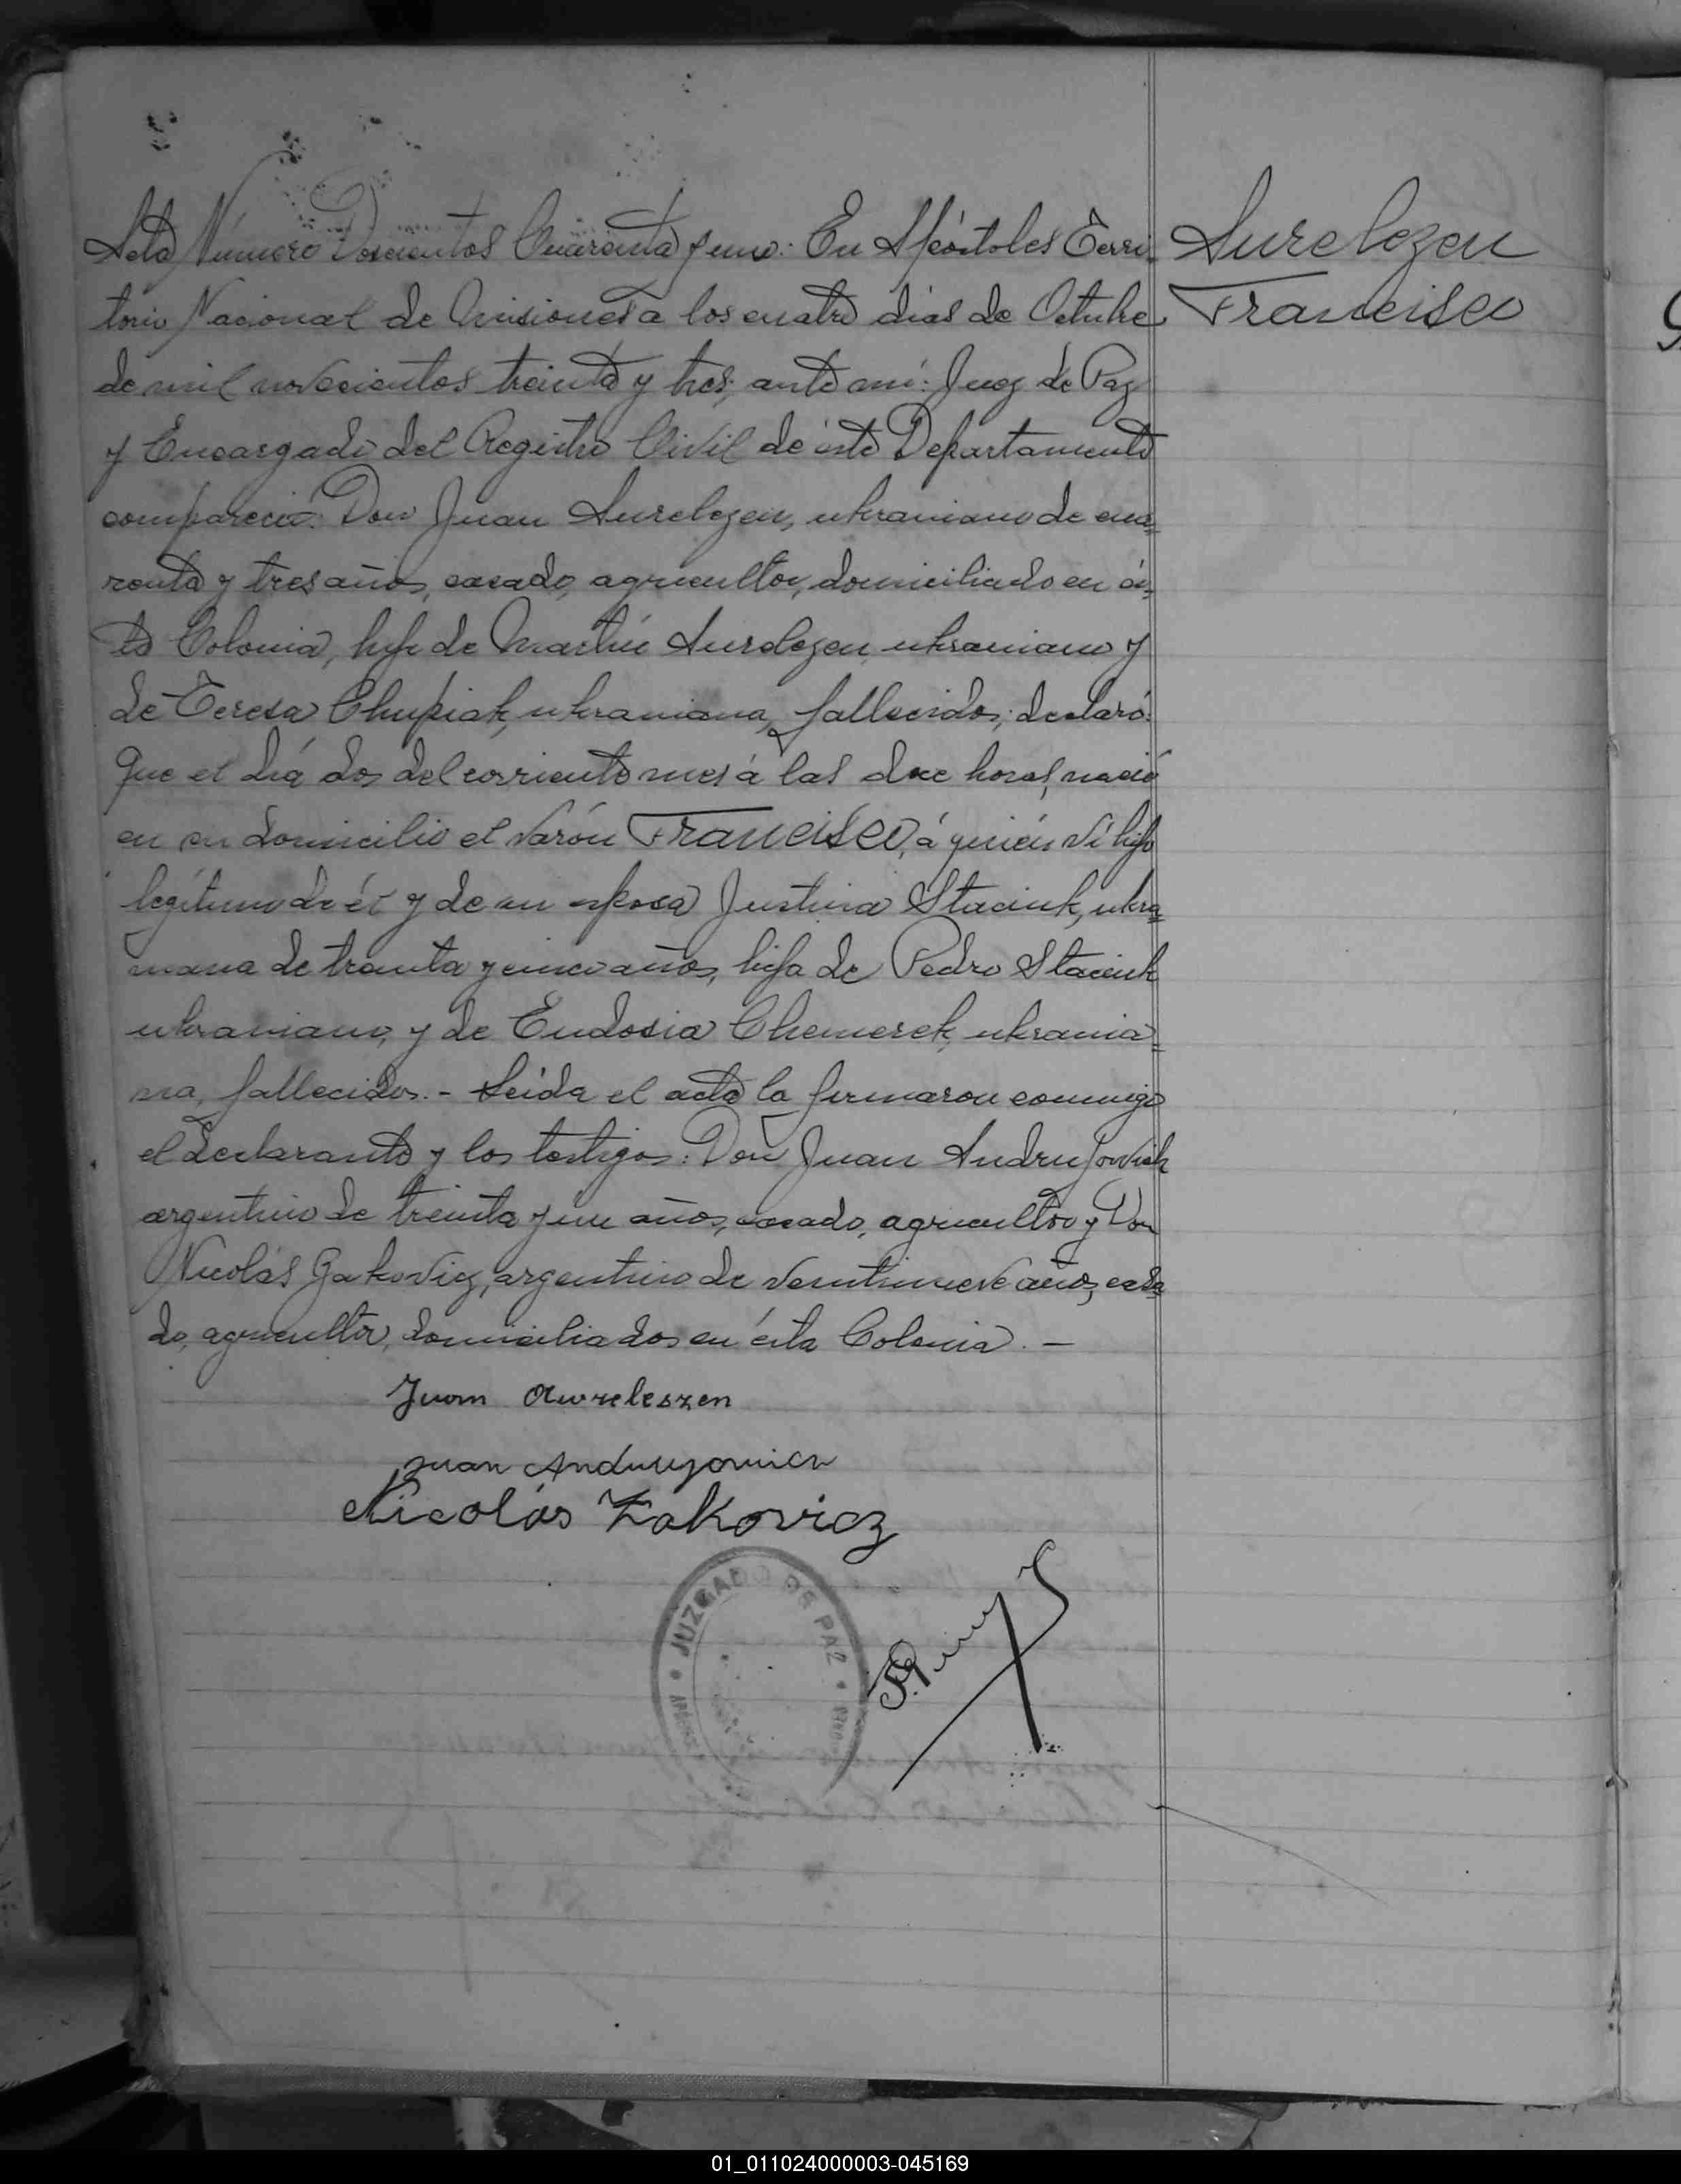 Acta Número Doscientos Cuarenta y uno: En Apóstoles Terri-
torio Nacional de Misiones a los cuatro días de Octubre
de mil novecientos treinta y tres, ante mí: Juez de Paz
y Encargado del Registro Civil de éste Departamento
compareció: Don Juan Aurelezen, ukraniano de cua=
renta y tres años, casado, agricultor, domiciliado en és=
ta Colonia, hijo de Martín Aurelezen, ukraniano y
de Teresa Chupiak, ukraniana, fallecidos; declaró:
Que el día dos del corriente mes á las doce horas, nació
en su domicilio el varón Francisco, á quién ví hijo
legítimo de él y de su esposa Justina Staciuk, ukra=
niana de treinta y cinco años, hija de Pedro Staciuk
ukraniano, y de Eudosia Chemerek, ukrania=
na, fallecidos.- Leída el acta la firmaron conmigo
el declarante y los testigos: Don Juan Andrujovich
argentino de treinta y un años, casado, agricultor y Don
Nicolás Zakovicz, argentino de veintinueve años, casa=
do, agricultor, domiciliados en ésta Colonia. —
Aurelezen
Francisco
Juan Aureleszen
Juan Andruyovich
Nicolás Zakovicz
JUZGADO DE PAZ
01_011024000003-045169